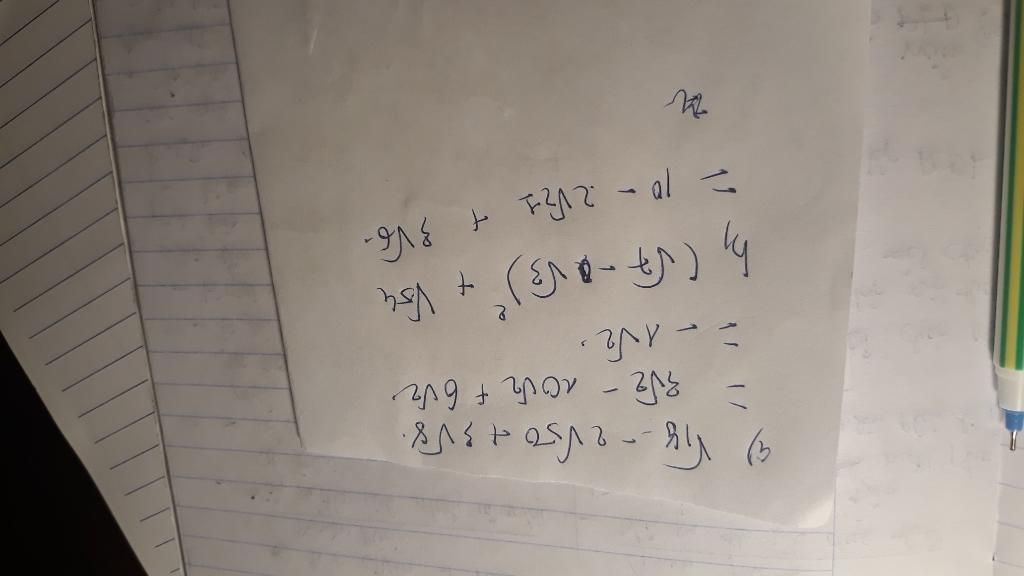 a) √18 - 2√50 + 3√8.
= 3√2 - 10√2 + 6√2
= - 1√2.
b) (√7 - √3)² + √54
= 10 - 2√21 + 3√6.